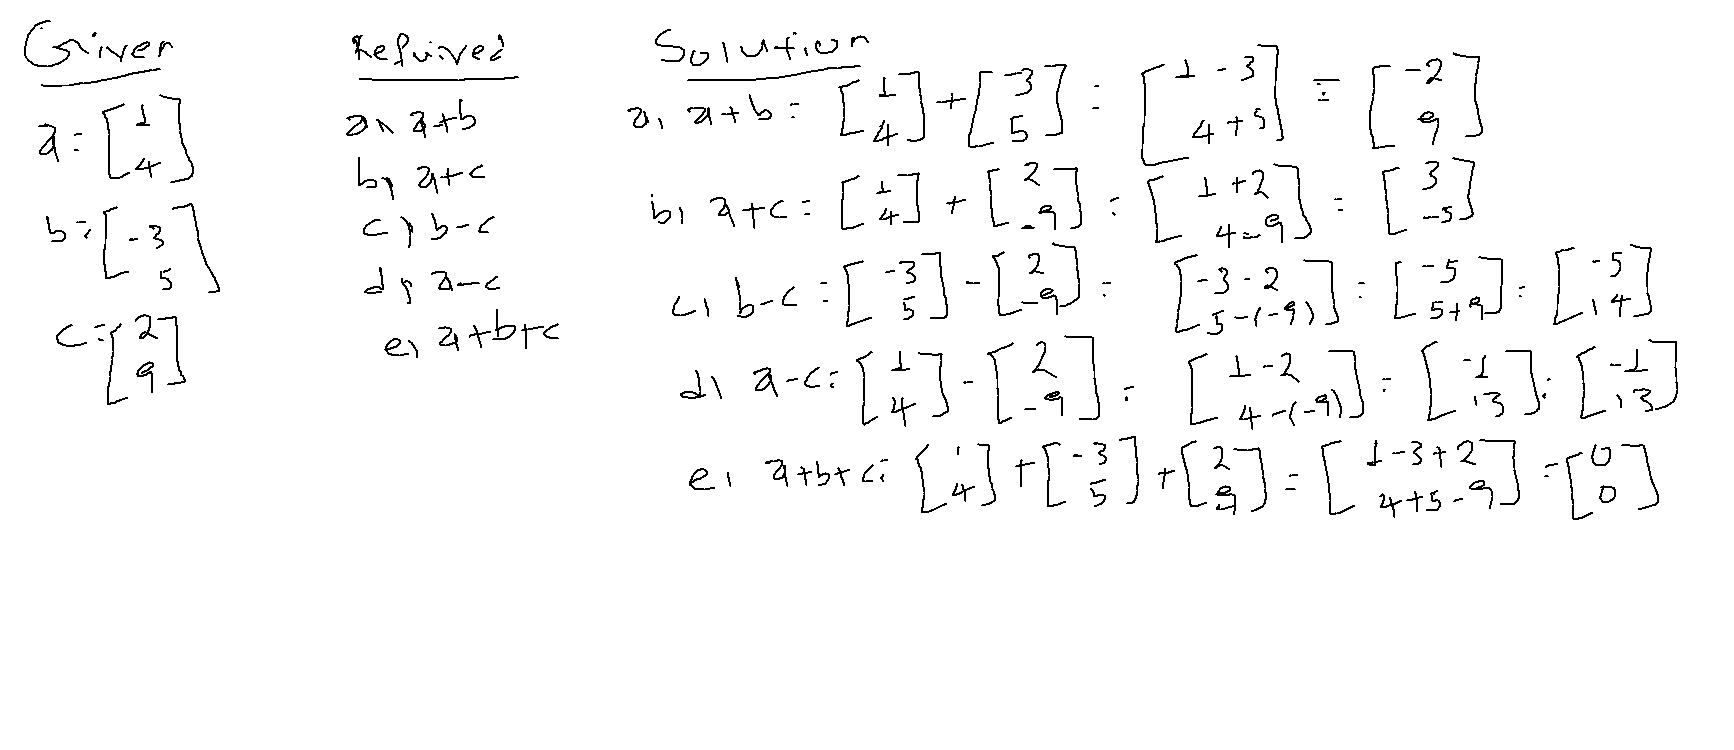 Given
a = [1 4]
b = [-3 5]
c = [2 9]
Required
a) a+b
b) a+c
c) b-c
d) a-c
e) a+b+c
Solution
a) a+b = [1 4] + [-3 5] = [1-3 4+5] = [-2 9]
b) a+c = [1 4] + [2 -9] = [1+2 4-9] = [3 -5]
c) b-c = [-3 5] - [2 -9] = [-3-2 5-(-9)] = [-5 5+9] = [-5 14]
d) a-c = [1 4] - [2 -9] = [1-2 4-(-9)] = [-1 13] = [-1 13]
e) a+b+c = [1 4] + [-3 5] + [2 -9] = [1-3+2 4+5-9] = [0 0]